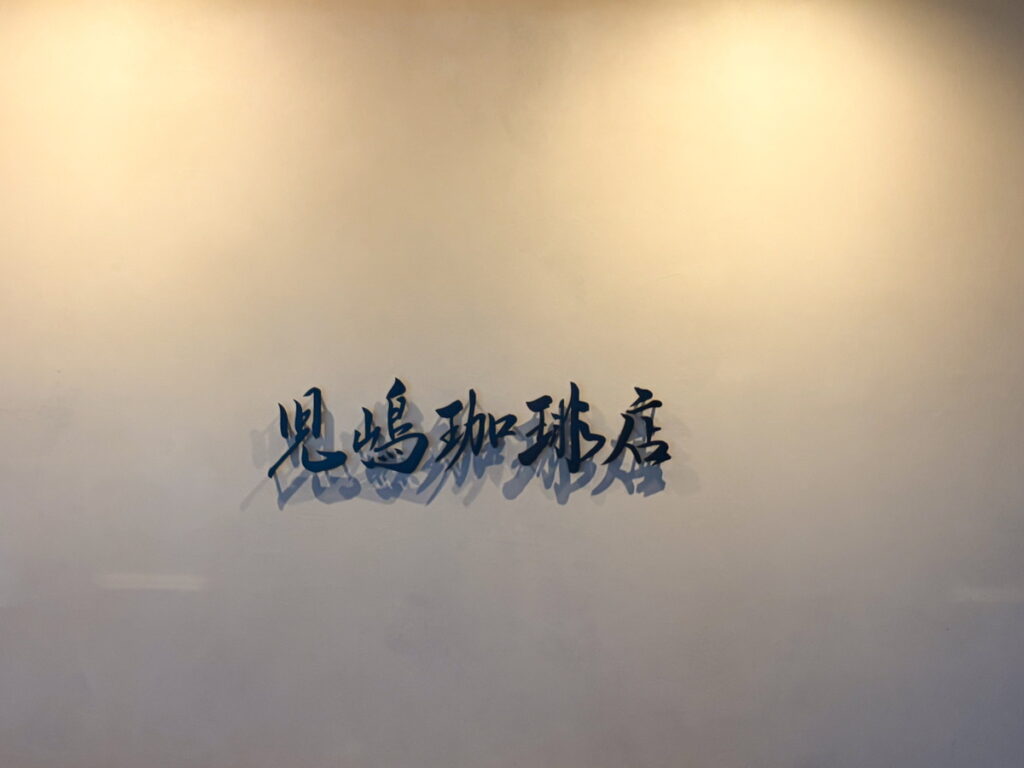 児嶋珈琲店